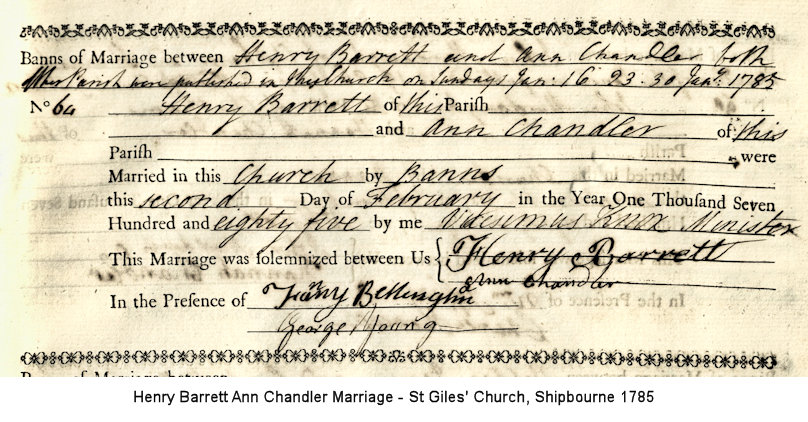 Banns of Marriage between Henry Barrett and Ann Chandler both
of this Parish were published in this Church on Sundays Jan: 16 23. 30 Jany. 1785
No 64 Henry Barrett of this Parish
and Ann Chandler of this
Parish were
Married in this Church by Banns
this second Day of February in the Year One Thousand Seven
Hundred and eighty five by me Vicesimus Knox Minister
This Marriage was solemnized between Us { Henry Barrett
Ann Chandler
In the Presence of
George Young
Henry Barrett Ann Chandler Marriage - St Giles' Church, Shipbourne 1785